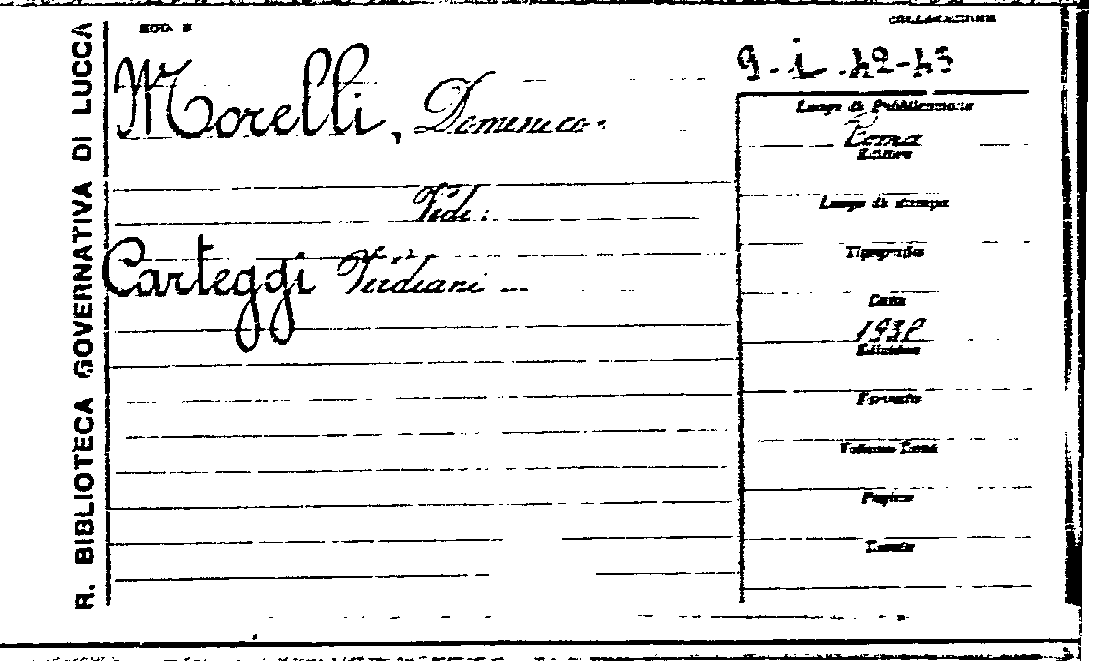 R. BIBLIOTECA GOVERNATIVA DI LUCCA
MOD.
COLLOCAZIONE
Morelli, Domenico.
Luogo di Pubblicazione
Roma
Editore
Vedi:
Luogo di stampa
Carteggi Verdiani
Tipografia
Data
Edizione
Formato
Volume Tomi
Pagine
Tavole